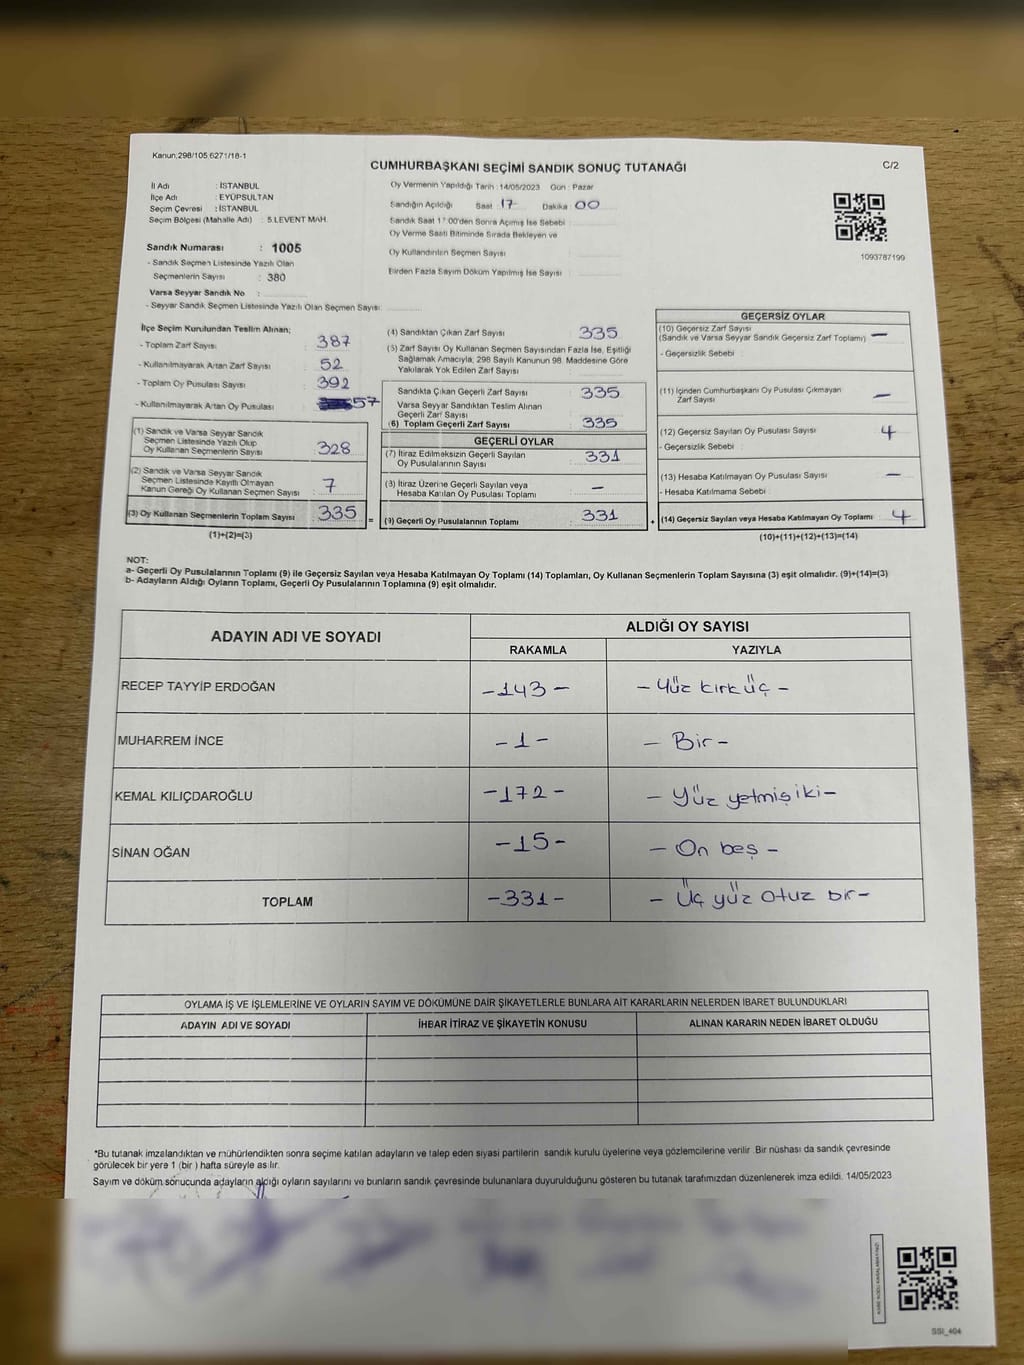 Kanun:298/105 6271/18-1
CUMHURBAŞKANI SEÇİMİ SANDIK SONUÇ TUTANAĞI
C/2
İl Adı : İSTANBUL
İlçe Adı : EYÜPSULTAN
Seçim Çevresi : İSTANBUL
Seçim Bölgesi (Mahalle Adı) : 5.LEVENT MAH.
Sandık Numarası : 1005
- Sandık Seçmen Listesinde Yazılı Olan
Seçmenlerin Sayısı : 380
Varsa Seyyar Sandık No :
- Seyyar Sandık Seçmen Listesinde Yazılı Olan Seçmen Sayısı:
Oy Vermenin Yapıldığı Tarih : 14/05/2023 Gün : Pazar
Sandığın Açıldığı Saat : 17 Dakika : 00
Sandık Saat 17:00'den Sonra Açımış İse Sebebi
Oy Verme Saati Bitiminde Sırada Bekleyen ve
Oy Kullandırılan Seçmen Sayısı
Birden Fazla Sayım Döküm Yapılmış İse Sayısı
1093787199
İlçe Seçim Kurulundan Teslim Alınan;
- Toplam Zarf Sayısı : 387
- Kullanılmayarak Artan Zarf Sayısı : 52
- Toplam Oy Pusulası Sayısı : 392
- Kullanılmayarak Artan Oy Pusulası : 57
(1) Sandık ve Varsa Seyyar Sandık
Seçmen Listesinde Yazılı Olup
Oy Kullanan Seçmenlerin Sayısı : 328
(2) Sandık ve Varsa Seyyar Sandık
Seçmen Listesinde Kayıtlı Olmayan
Kanun Gereği Oy Kullanan Seçmen Sayısı : 7
(3) Oy Kullanan Seçmenlerin Toplam Sayısı : 335
(1)+(2)=(3)
(4) Sandıktan Çıkan Zarf Sayısı : 335
(5) Zarf Sayısı Oy Kullanan Seçmen Sayısından Fazla İse, Eşitliği
Sağlamak Amacıyla; 298 Sayılı Kanunun 98. Maddesine Göre
Yakılarak Yok Edilen Zarf Sayısı
Sandıkta Çıkan Geçerli Zarf Sayısı : 335
Varsa Seyyar Sandıktan Teslim Alınan
Geçerli Zarf Sayısı
(6) Toplam Geçerli Zarf Sayısı : 335
GEÇERLİ OYLAR
(7) İtiraz Edilmeksizin Geçerli Sayılan
Oy Pusulalarının Sayısı : 331
(8) İtiraz Üzerine Geçerli Sayılan veya
Hesaba Katılan Oy Pusulası Toplamı : —
= (9) Geçerli Oy Pusulalarının Toplamı : 331
GEÇERSİZ OYLAR
(10) Geçersiz Zarf Sayısı
(Sandık ve Varsa Seyyar Sandık Geçersiz Zarf Toplamı) : —
- Geçersizlik Sebebi :
(11) İçinden Cumhurbaşkanı Oy Pusulası Çıkmayan
Zarf Sayısı : —
(12) Geçersiz Sayılan Oy Pusulası Sayısı : 4
- Geçersizlik Sebebi :
(13) Hesaba Katılmayan Oy Pusulası Sayısı : —
- Hesaba Katılmama Sebebi :
+ (14) Geçersiz Sayılan veya Hesaba Katılmayan Oy Toplamı : 4
(10)+(11)+(12)+(13)=(14)
NOT:
a- Geçerli Oy Pusulalarının Toplamı (9) ile Geçersiz Sayılan veya Hesaba Katılmayan Oy Toplamı (14) Toplamları, Oy Kullanan Seçmenlerin Toplam Sayısına (3) eşit olmalıdır. (9)+(14)=(3)
b- Adayların Aldığı Oyların Toplamı, Geçerli Oy Pusulalarının Toplamına (9) eşit olmalıdır.
ADAYIN ADI VE SOYADI
ALDIĞI OY SAYISI
RAKAMLA YAZIYLA
RECEP TAYYİP ERDOĞAN -143- - Yüz kırk üç -
MUHARREM İNCE -1- - Bir -
KEMAL KILIÇDAROĞLU -172- - Yüz yetmiş iki -
SİNAN OĞAN -15- - On beş -
TOPLAM -331- - Üç yüz otuz bir -
OYLAMA İŞ VE İŞLEMLERİNE VE OYLARIN SAYIM VE DÖKÜMÜNE DAİR ŞİKAYETLERLE BUNLARA AİT KARARLARIN NELERDEN İBARET BULUNDUKLARI
ADAYIN ADI VE SOYADI İHBAR İTİRAZ VE ŞİKAYETİN KONUSU ALINAN KARARIN NEDEN İBARET OLDUĞU
*Bu tutanak imzalandıktan ve mühürlendikten sonra seçime katılan adayların ve talep eden siyasi partilerin sandık kurulu üyelerine veya gözlemcilerine verilir. Bir nüshası da sandık çevresinde
görülecek bir yere 1 (bir ) hafta süreyle asılır.
Sayım ve döküm sonucunda adayların aldığı oyların sayılarını ve bunların sandık çevresinde bulunanlara duyurulduğunu gösteren bu tutanak tarafımızdan düzenlenerek imza edildi. 14/05/2023
SSİ_404